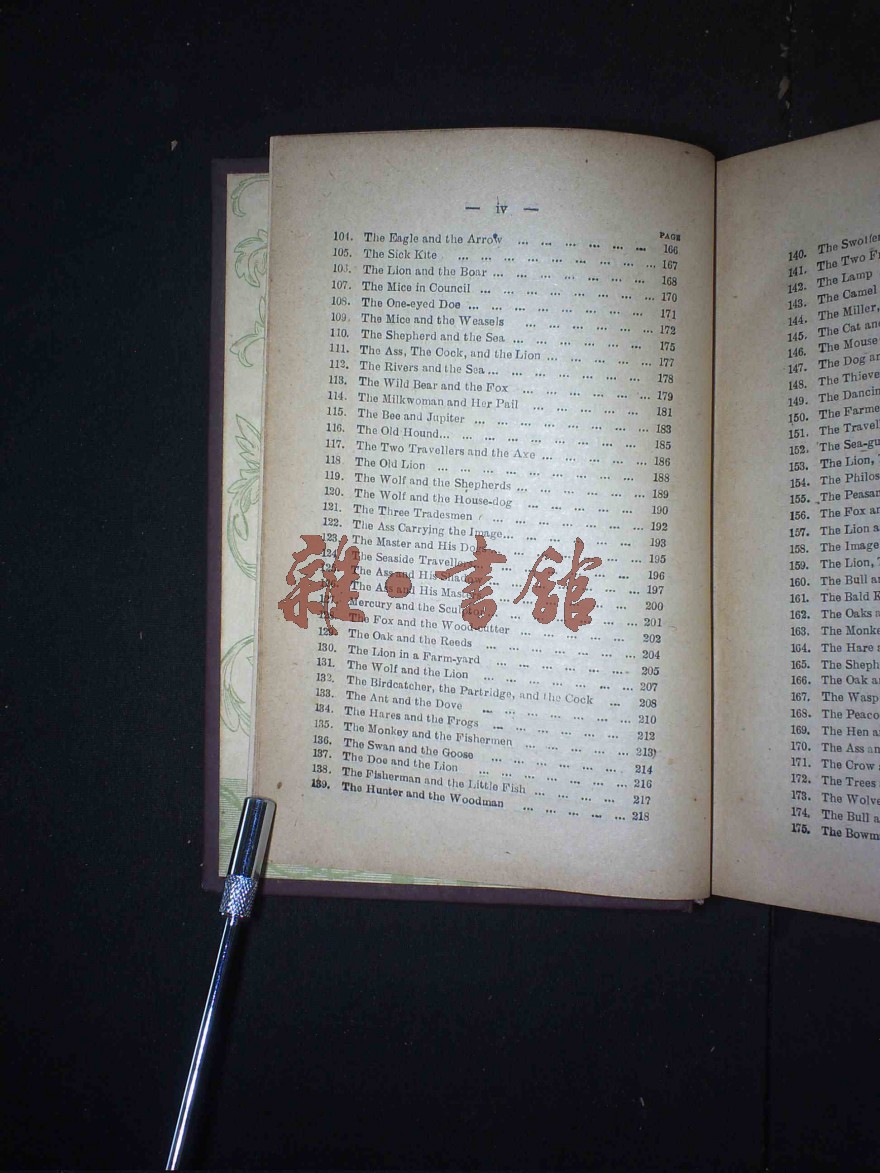 — iv —
PAGE
104. The Eagle and the Arrow ... ... ... ... ... ... 166
105. The Sick Kite ... ... ... ... ... ... ... ... 167
106. The Lion and the Boar ... ... ... ... ... ... 168
107. The Mice in Council ... ... ... ... ... ... ... 170
108. The One-eyed Doe ... ... ... ... ... ... ... 171
109. The Mice and the Weasels ... ... ... ... ... ... 172
110. The Shepherd and the Sea ... ... ... ... ... ... 175
111. The Ass, The Cock, and the Lion ... ... ... ... ... 177
112. The Rivers and the Sea ... ... ... ... ... ... ... 178
113. The Wild Bear and the Fox ... ... ... ... ... ... 179
114. The Milkwoman and Her Pail ... ... ... ... ... 181
115. The Bee and Jupiter ... ... ... ... ... ... ... 183
116. The Old Hound... ... ... ... ... ... ... ... 185
117. The Two Travellers and the Axe ... ... ... ... ... 186
118. The Old Lion ... ... ... ... ... ... ... 188
119. The Wolf and the Shepherds ... ... ... ... ... ... 189
120. The Wolf and the House-dog ... ... ... ... ... 190
121. The Three Tradesmen ... ... ... ... ... ... ... 192
122. The Ass Carrying the Image... ... ... ... ... ... 193
123. The Master and His Dogs ... ... ... ... ... 195
124. The Seaside Travellers ... ... ... ... ... ... 196
125. The Ass and His Shadow ... ... ... ... ... ... 197
126. The Ass and His Masters ... ... ... ... ... ... 200
127. Mercury and the Sculptor ... ... ... ... ... ... 201
128. The Fox and the Wood-cutter ... ... ... ... ... 202
129. The Oak and the Reeds ... ... ... ... ... ... ... 204
130. The Lion in a Farm-yard ... ... ... ... ... ... 205
131. The Wolf and the Lion ... ... ... ... ... ... ... 207
132. The Birdcatcher, the Partridge, and the Cock ... 208
133. The Ant and the Dove ... ... ... ... ... ... ... 210
134. The Hares and the Frogs ... ... ... ... ... ... 212
135. The Monkey and the Fishermen ... ... ... ... ... 213
136. The Swan and the Goose ... ... ... ... ... ... 214
137. The Doe and the Lion ... ... ... ... ... ... 216
138. The Fisherman and the Little Fish ... ... ... ... 217
139. The Hunter and the Woodman ... ... ... ... ... 218
雜·書館
140. The
141. The Two
142. The Lamp
143. The Camel
144. The Miller,
145. The Cat
146. The Mouse
147. The Dog
148. The
149. The
150. The
151. The
152. The
153. The Lion,
154. The
155. The
156. The Fox
157. The Lion
158. The Image
159. The Lion,
160. The Bull
161. The Bald
162. The Oaks
163. The
164. The Hare
165. The
166. The Oak
167. The Wasp
168. The
169. The Hen
170. The Ass
171. The Crow
172. The Trees
173. The
174. The Bull
175. The